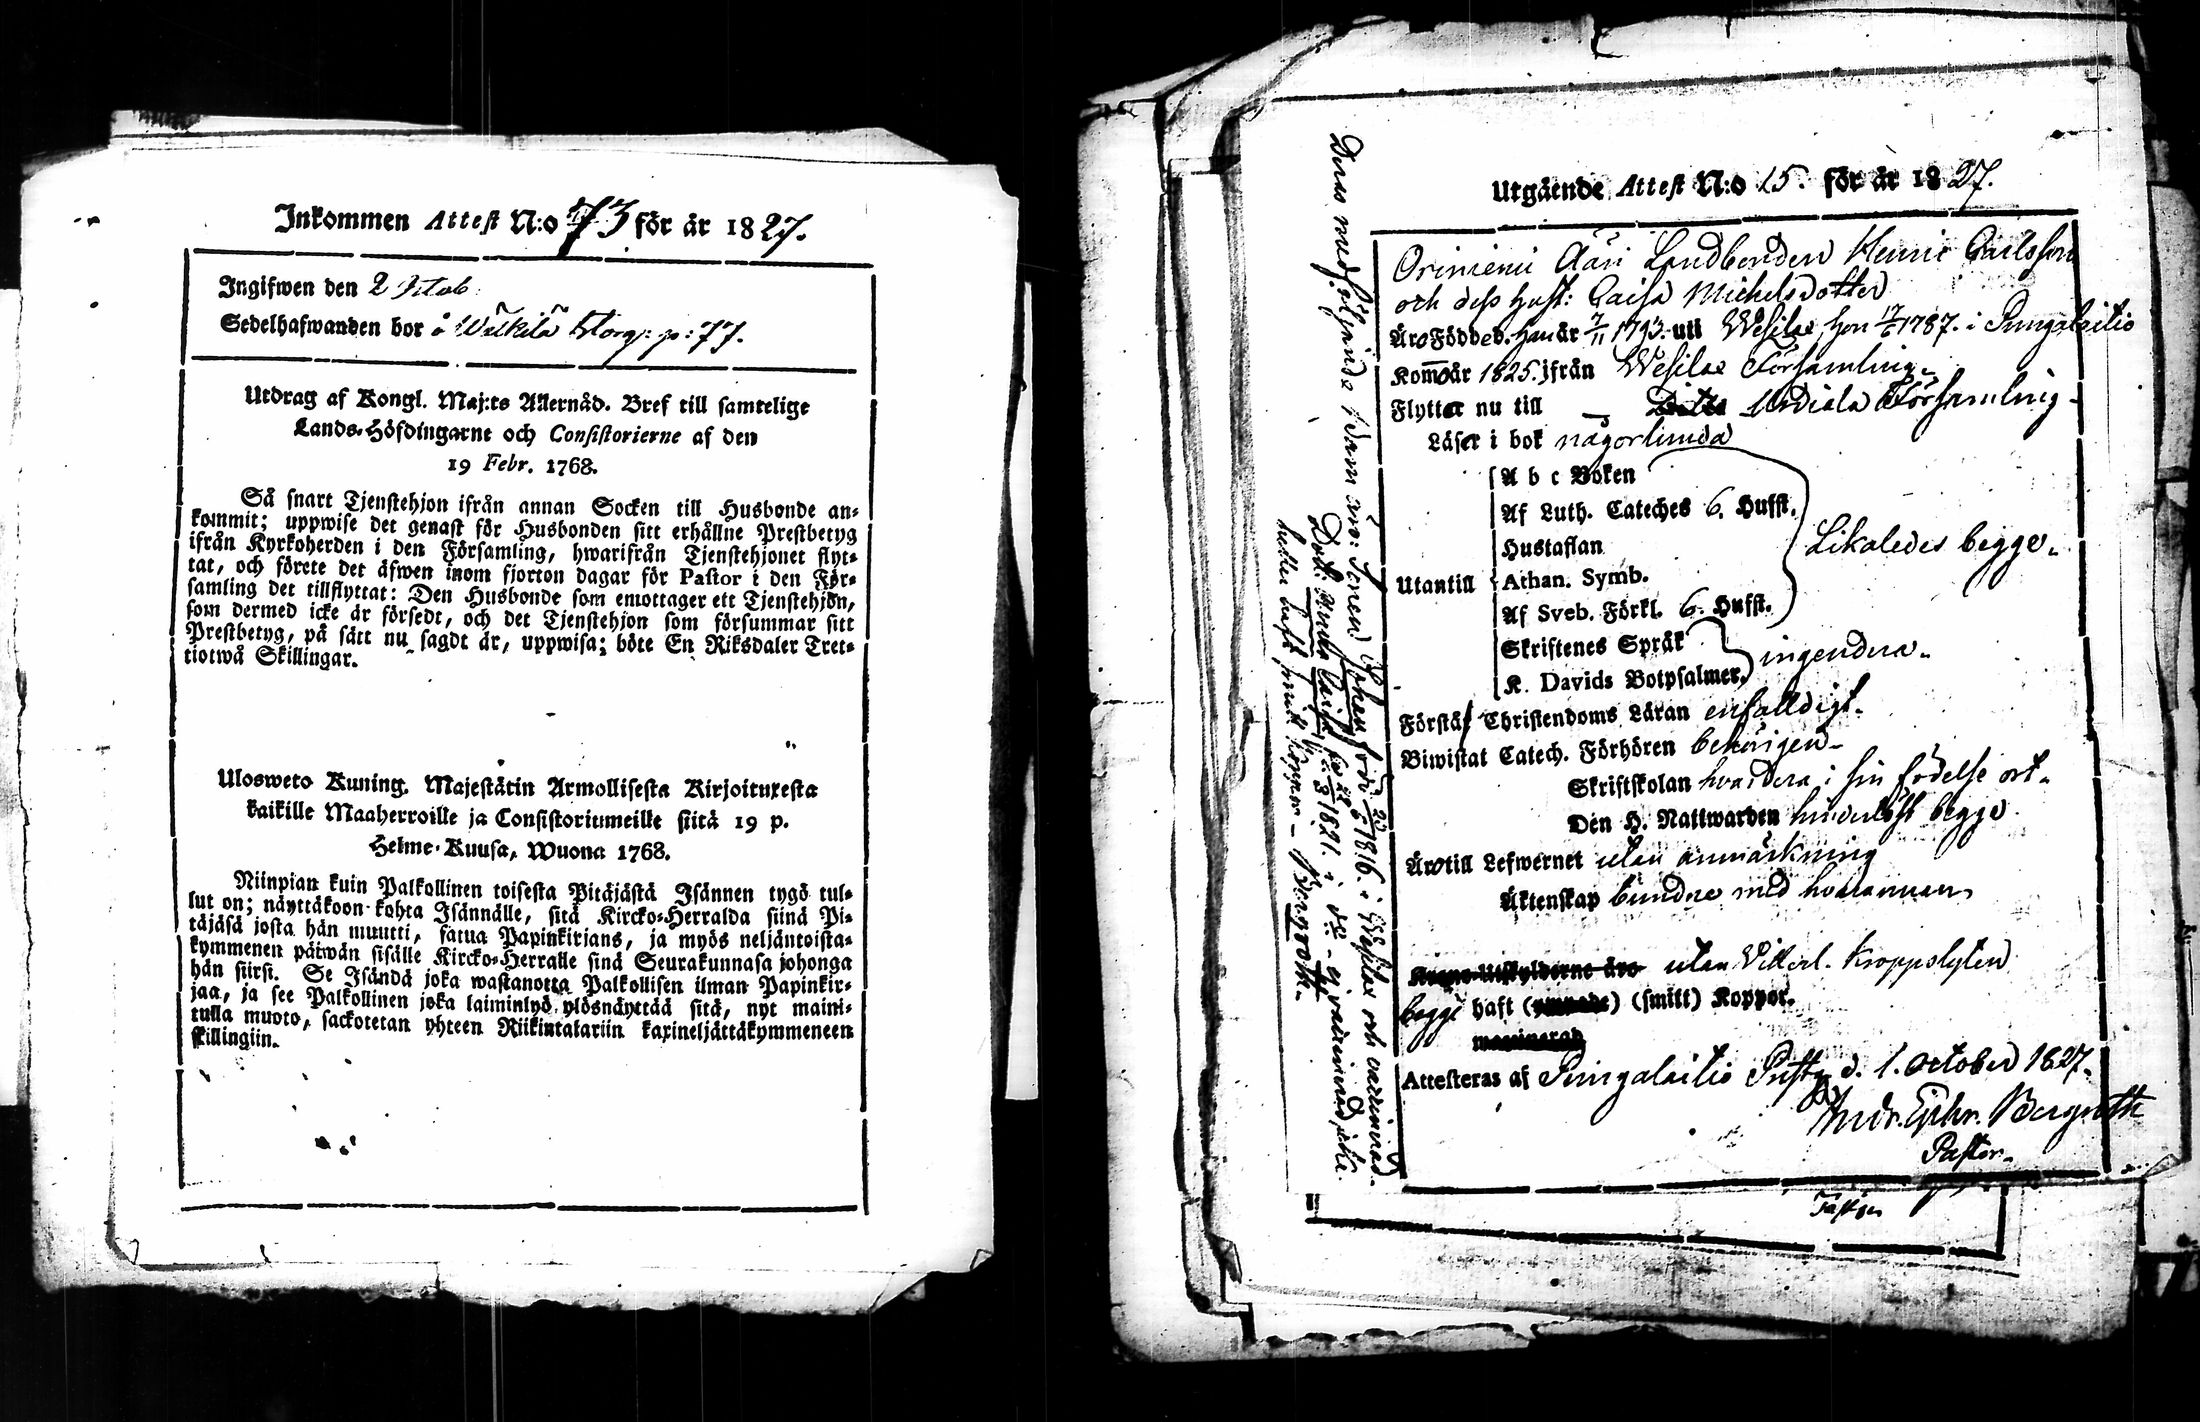 Inkommen Attest N:o 73 för år 1827.
Ingifwen den 2 Octob.
Sedelhafwanden bor å Wälkilä Storg: p: 77.
Utdrag af Kongl. Maj:ts Allernåd. Bref till samtelige
Lands-Höfdingarne och Consistorierne af den
19 Febr. 1768.
Så snart Tjenstehjon ifrån annan Socken till Husbonde an-
kommit; uppwise det genast för Husbonden sitt erhållne Prestbetyg
ifrån Kyrkoherden i den Församling, hwarifrån Tjenstehjonet flyt-
tat, och förete det äfwen inom fjorton dagar för Pastor i den För-
samling det tillflyttat: Den Husbonde som emottager ett Tjenstehjon,
som dermed icke är försedt, och det Tjenstehjon som försummar sitt
Prestbetyg, på sätt nu sagdt är, uppwisa; böte En Riksdaler Tret-
tiotwå Skillingar.
Ulosweto Kuning. Majestätin Armollisesta Kirjoituxesta
kaikille Maaherroille ja Consistoriumeille siitä 19 p.
Helme-Kuusa, Wuona 1768.
Niinpian kuin Palkollinen toisesta Pitäjästä Isännen tygö tul-
lut on; näyttäkoon kohta Isännälle, sitä Kircko-Herralda siinä Pi-
täjäsä josta hän muutti, saatua Papinkirjans, ja myös neljäntoista-
kymmenen päiwän sisälle Kircko-Herralle sinä Seurakunnasa johonga
hän siirsi. Se Isändä joka wastanotta Palkollisen ilman Papinkir-
jaa, ja see Palkollinen joka laiminlyö ylösnäyttää sitä, nyt maini-
tulla muoto, sackotetan yhteen Riikintalariin kaxineljättäkymmeneen
skillingiin.
Utgående Attest N:o 15. för år 1827.
Orinieni Ääri Landbonden Henric Carlsson
och dess hust: Caisa Michelsdotter
Äro Födde d. han år 7/11 1793. uti Wesilax hon 17/6 1787. i Pungalaitio
Kommo år 1825. ifrån Wesilax Församling.
Flyttar nu till Urdiala Församling.
Läser i bok någorlunda
Utantill
A b c Boken
Af Luth. Cateches 6. Hufst.
Hustaflan
Athan. Symb.
Af Sveb. Förkl. 6. Hufst.
Likaledes begge.
Skriftenes Språk
K. Davids Botpsalmer,
ingendera.
Förstår Christendoms Läran enfalldigt.
Biwistat Catech. Förhören behörigen.
Skriftskolan hvardera i sin födelse ort.
Den H. Nattwarden hinderlöst begge.
Äro till Lefwernet utan anmärkning
Äktenskap bundne med hvarannan
Krono-Utskylderne äro utan Vitterl. Kroppslyten
begge haft (smitt) Koppor.
Attesteras af Pungalaitio Prestg. d. 1. October 1827.
Andr. Ephr. Bergroth
Pastor.
Deras medföljande barn äro: Sonen Johan född 1816. i Wesilax och vaccinerad.
Dott: Anna Caisa född 1821. i do - ej vaccinerad, icke
heller haft smitt koppor - Bergroth.